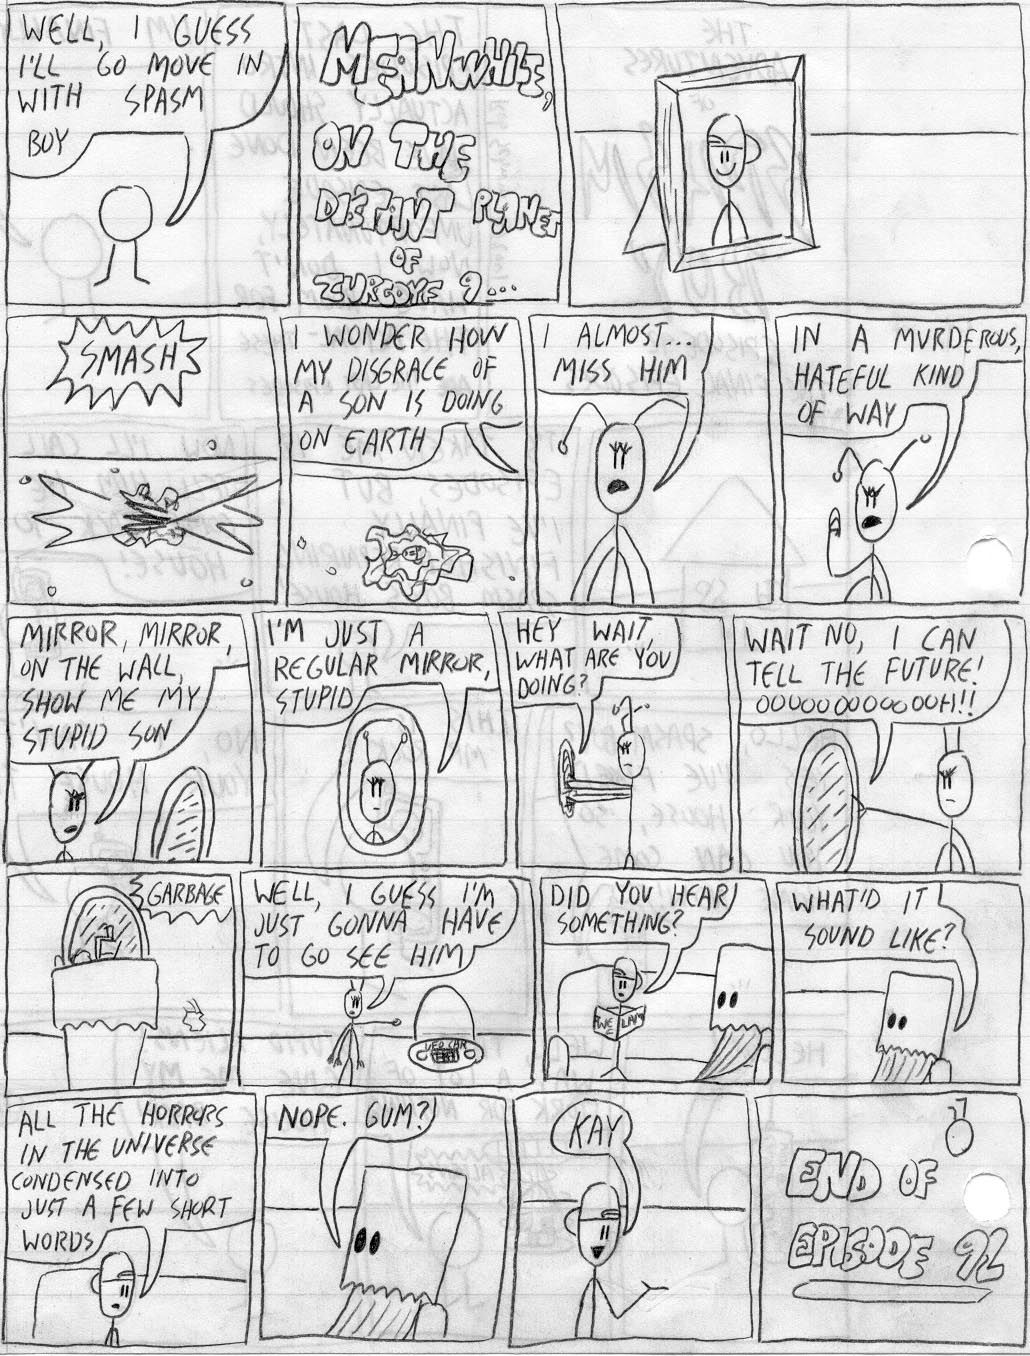 WELL, I GUESS
I'LL GO MOVE IN
WITH SPASM
BOY
MEANWHILE,
ON THE
DISTANT PLANET
OF
ZURGOYF 9...
SMASH
I WONDER HOW
MY DISGRACE OF
A SON IS DOING
ON EARTH
I ALMOST...
MISS HIM
IN A MURDEROUS,
HATEFUL KIND
OF WAY
MIRROR, MIRROR,
ON THE WALL,
SHOW ME MY
STUPID SON
I'M JUST A
REGULAR MIRROR,
STUPID
HEY WAIT,
WHAT ARE YOU
DOING?
WAIT NO, I CAN
TELL THE FUTURE!
OOOOOOOOOOOOH!!
GARBAGE
WELL, I GUESS I'M
JUST GONNA HAVE
TO GO SEE HIM
UFO CAR
DID YOU HEAR
SOMETHING?
WHAT'D IT
SOUND LIKE?
ALL THE HORRORS
IN THE UNIVERSE
CONDENSED INTO
JUST A FEW SHORT
WORDS
NOPE. GUM?
KAY
END OF
EPISODE 92